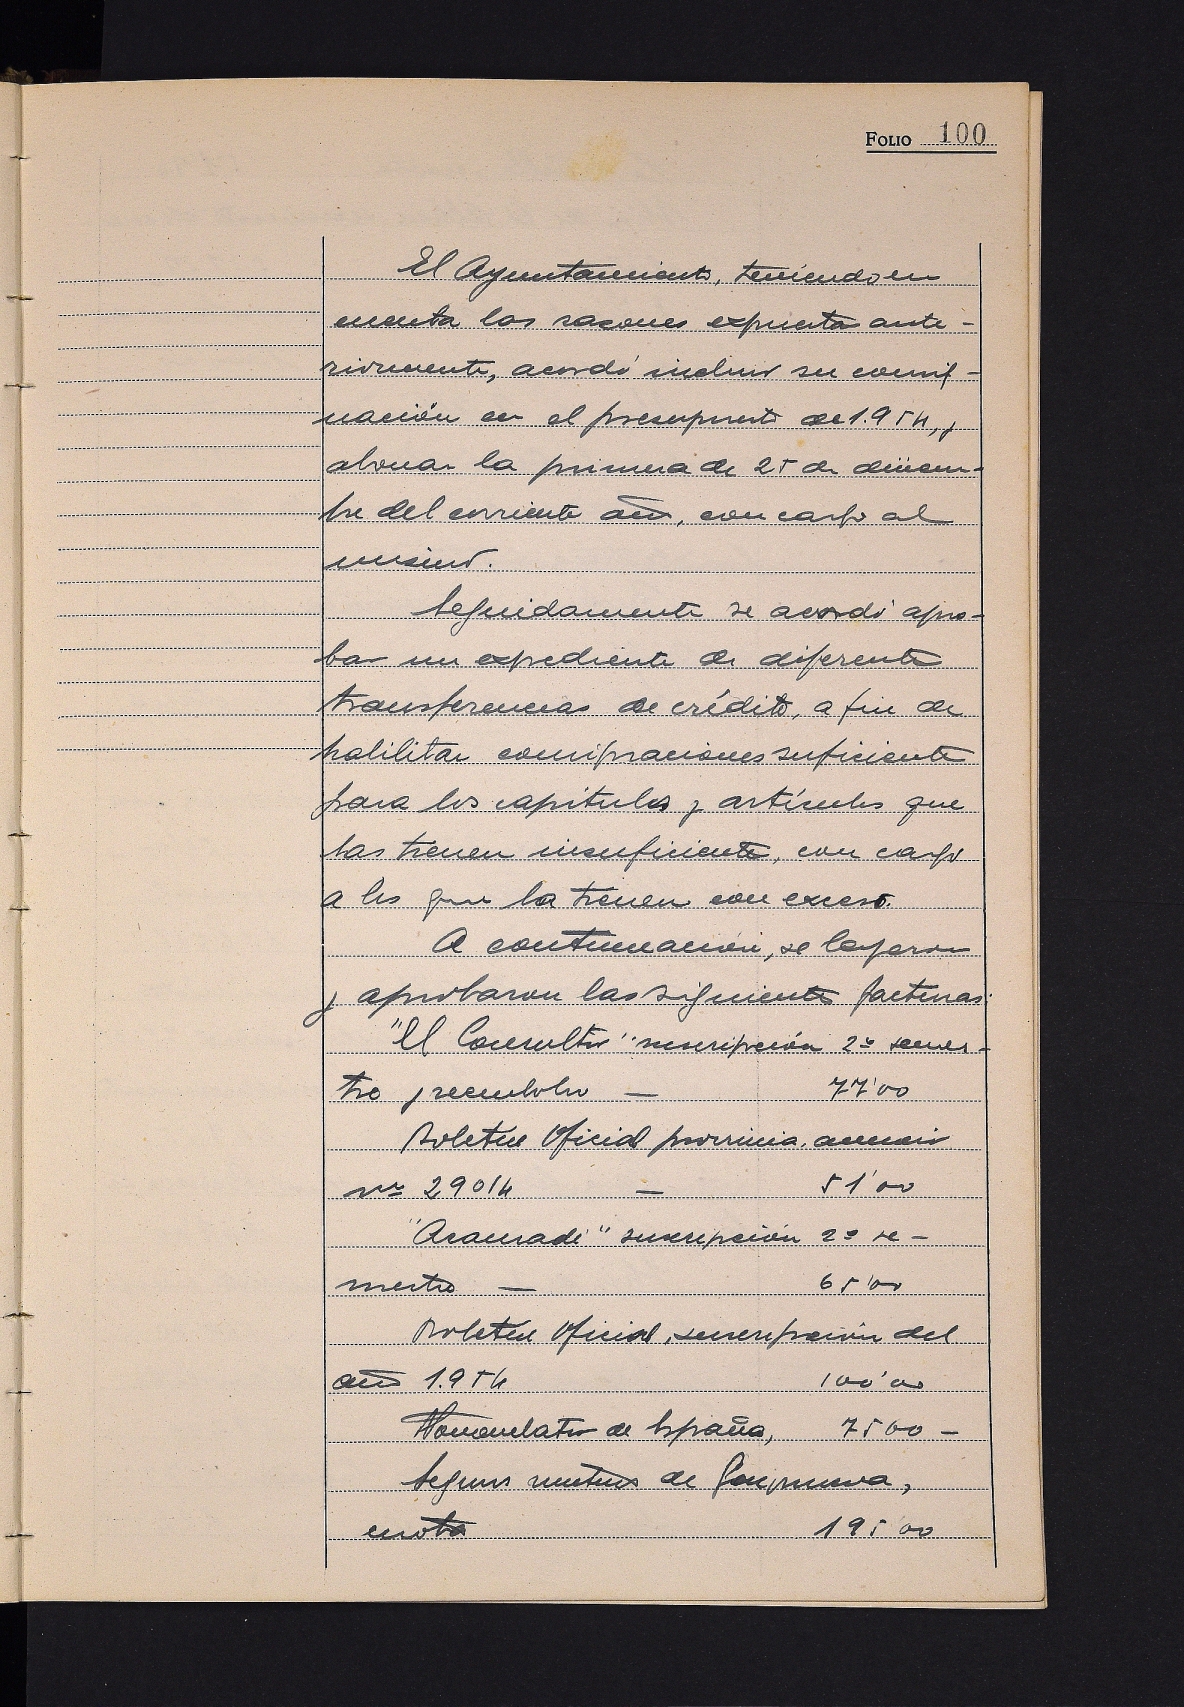 FOLIO 100
El Ayuntamiento, teniendo en
cuenta las razones expuesta ante-
riormente, acordó incluir su consig-
nación en el presupuesto de 1.954, y
abonar la primera de 25 de diciem-
bre del corriente año, con cargo al
mismo.
Seguidamente se acordó apro-
bar un expediente de diferente
transferencias de crédito, a fin de
habilitar consignaciones suficiente
para los capítulos y artículos que
las tienen insuficiente, con cargo
a los que la tienen con exceso.
A continuación, se leyeron
y aprobaron las siguientes facturas:
"El Consultor" suscripción 2º semes-
tre y reembolso — 77'00
Boletín Oficial provincia, anuncio
nº 29014 — 51'00
"Aranzadi" suscripción 2º se-
mestre — 65'00
Boletín Oficial, suscripción del
año 1.954 100'00
Nomenclator de España, 75'00 —
Seguros mutuos de Guipuzcoa,
cuota 195'00